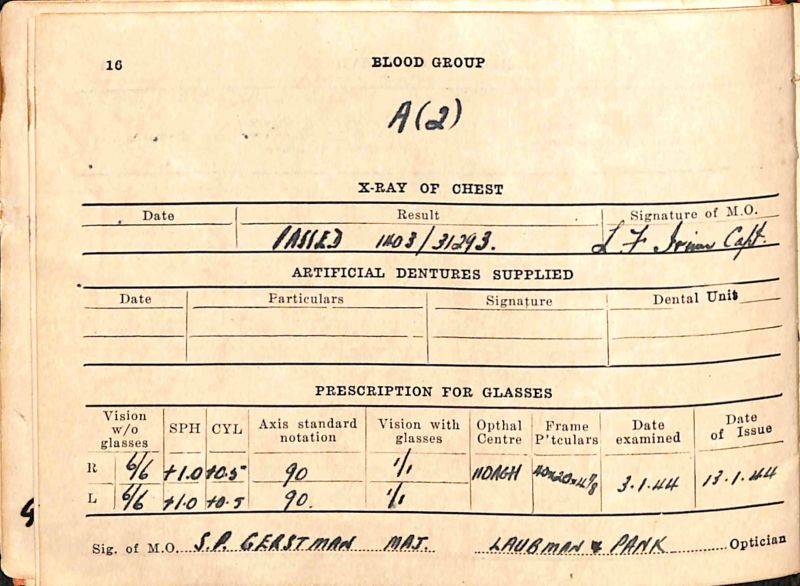 16 BLOOD GROUP
A(2)
X-RAY OF CHEST
Date Result Signature of M.O.
PASSED 1403/31293. L F Capt.
ARTIFICIAL DENTURES SUPPLIED
Date Particulars Signature Dental Unit
PRESCRIPTION FOR GLASSES
Vision w/o glasses SPH CYL Axis standard notation Vision with glasses Opthal Centre Frame P'tculars Date examined Date of Issue
R 6/6 +1.0 +0.5 90 1/1 110AGH 40x20x4⅞ 3.1.44 13.1.44
L 6/6 +1.0 +0.5 90. 1/1
Sig. of M.O. S.P. GERSTMAN MAJ. LAUBMAN & PANK Optician